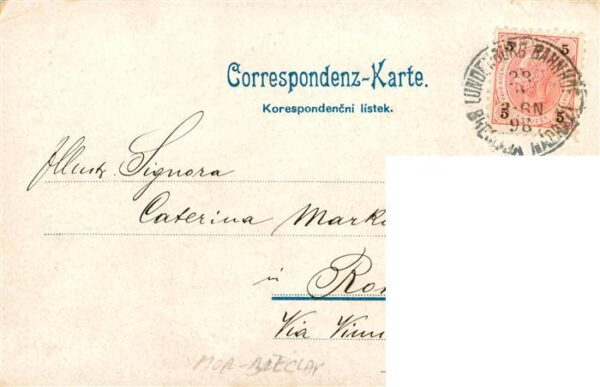 Correspondenz-Karte.
Korespondenční listek.
5 5
5 5
LUNDENBURG BAHNHOF
98
BŘECLAVA NÁDRAŽÍ
Illustr. Signora
Caterina Marko
in Ro
Via
MOR-BŘECLAV